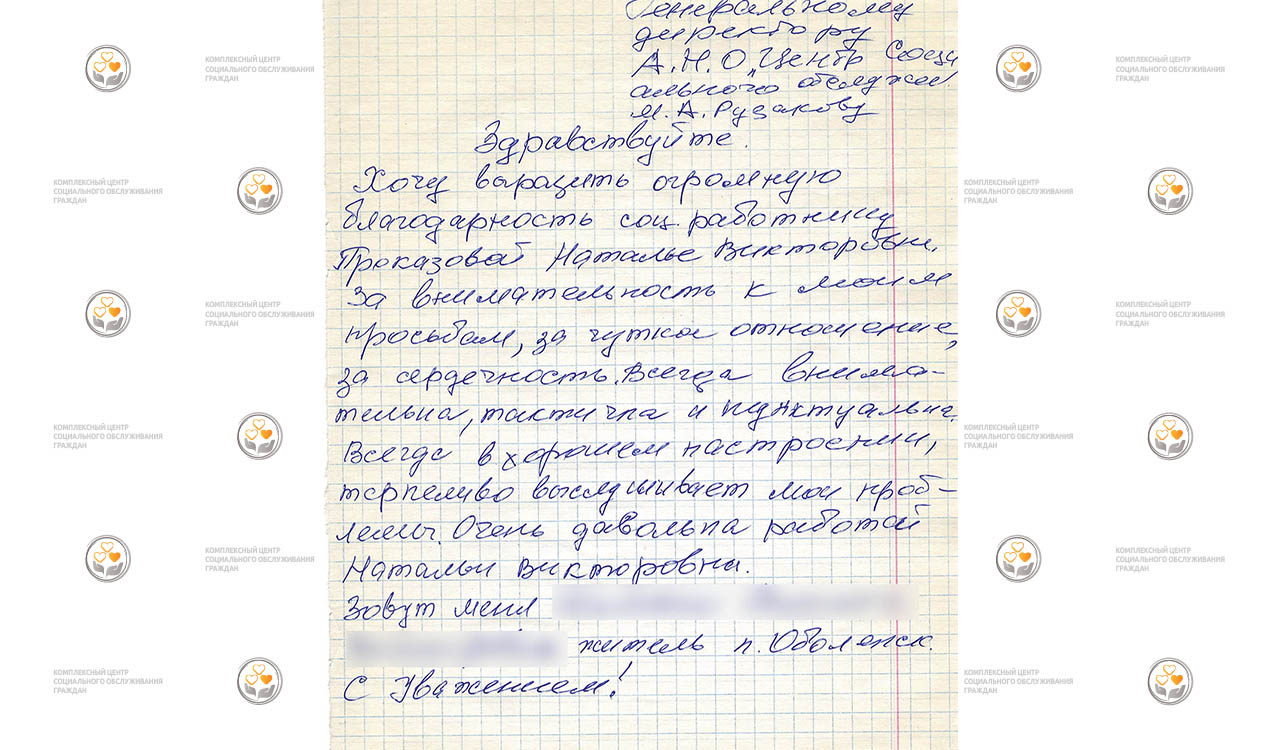 Генеральному
директору
А.Н.О „Центр Соци
ального обслужив.
М.А.Рузакову
Здравствуйте.
Хочу выразить огромную
благодарность соц. работнику
Проказовой Наталье Викторовне.
За внимательность к моим
просьбам, за чуткое отношение,
за сердечность. Всегда внима-
тельна, тактична и пунктуальна.
Всегда в хорошем настроении,
терпеливо выслушивает мои проб-
лемы. Очень давольна работой
Натальи Викторовны.
Зовут меня
житель п. Оболенск.
С Уважением!
КОМПЛЕКСНЫЙ ЦЕНТР
СОЦИАЛЬНОГО ОБСЛУЖИВАНИЯ
ГРАЖДАН